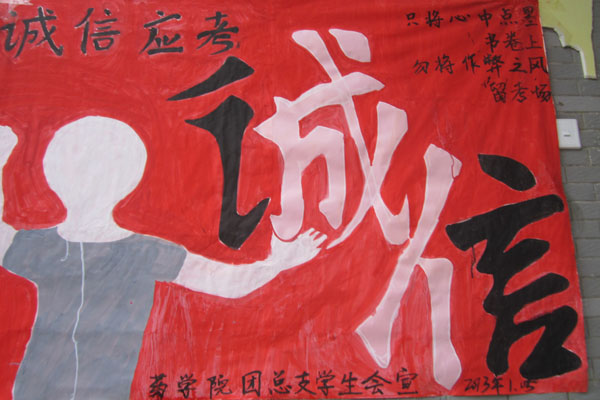 诚信应考
只将心中点墨
书卷上
勿将作弊之风
留考场
诚信
药学院团总支学生会宣
2013年1.